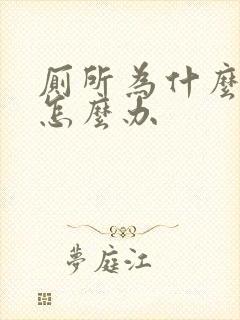 厠所為什麼
怎麼办
夢庭江